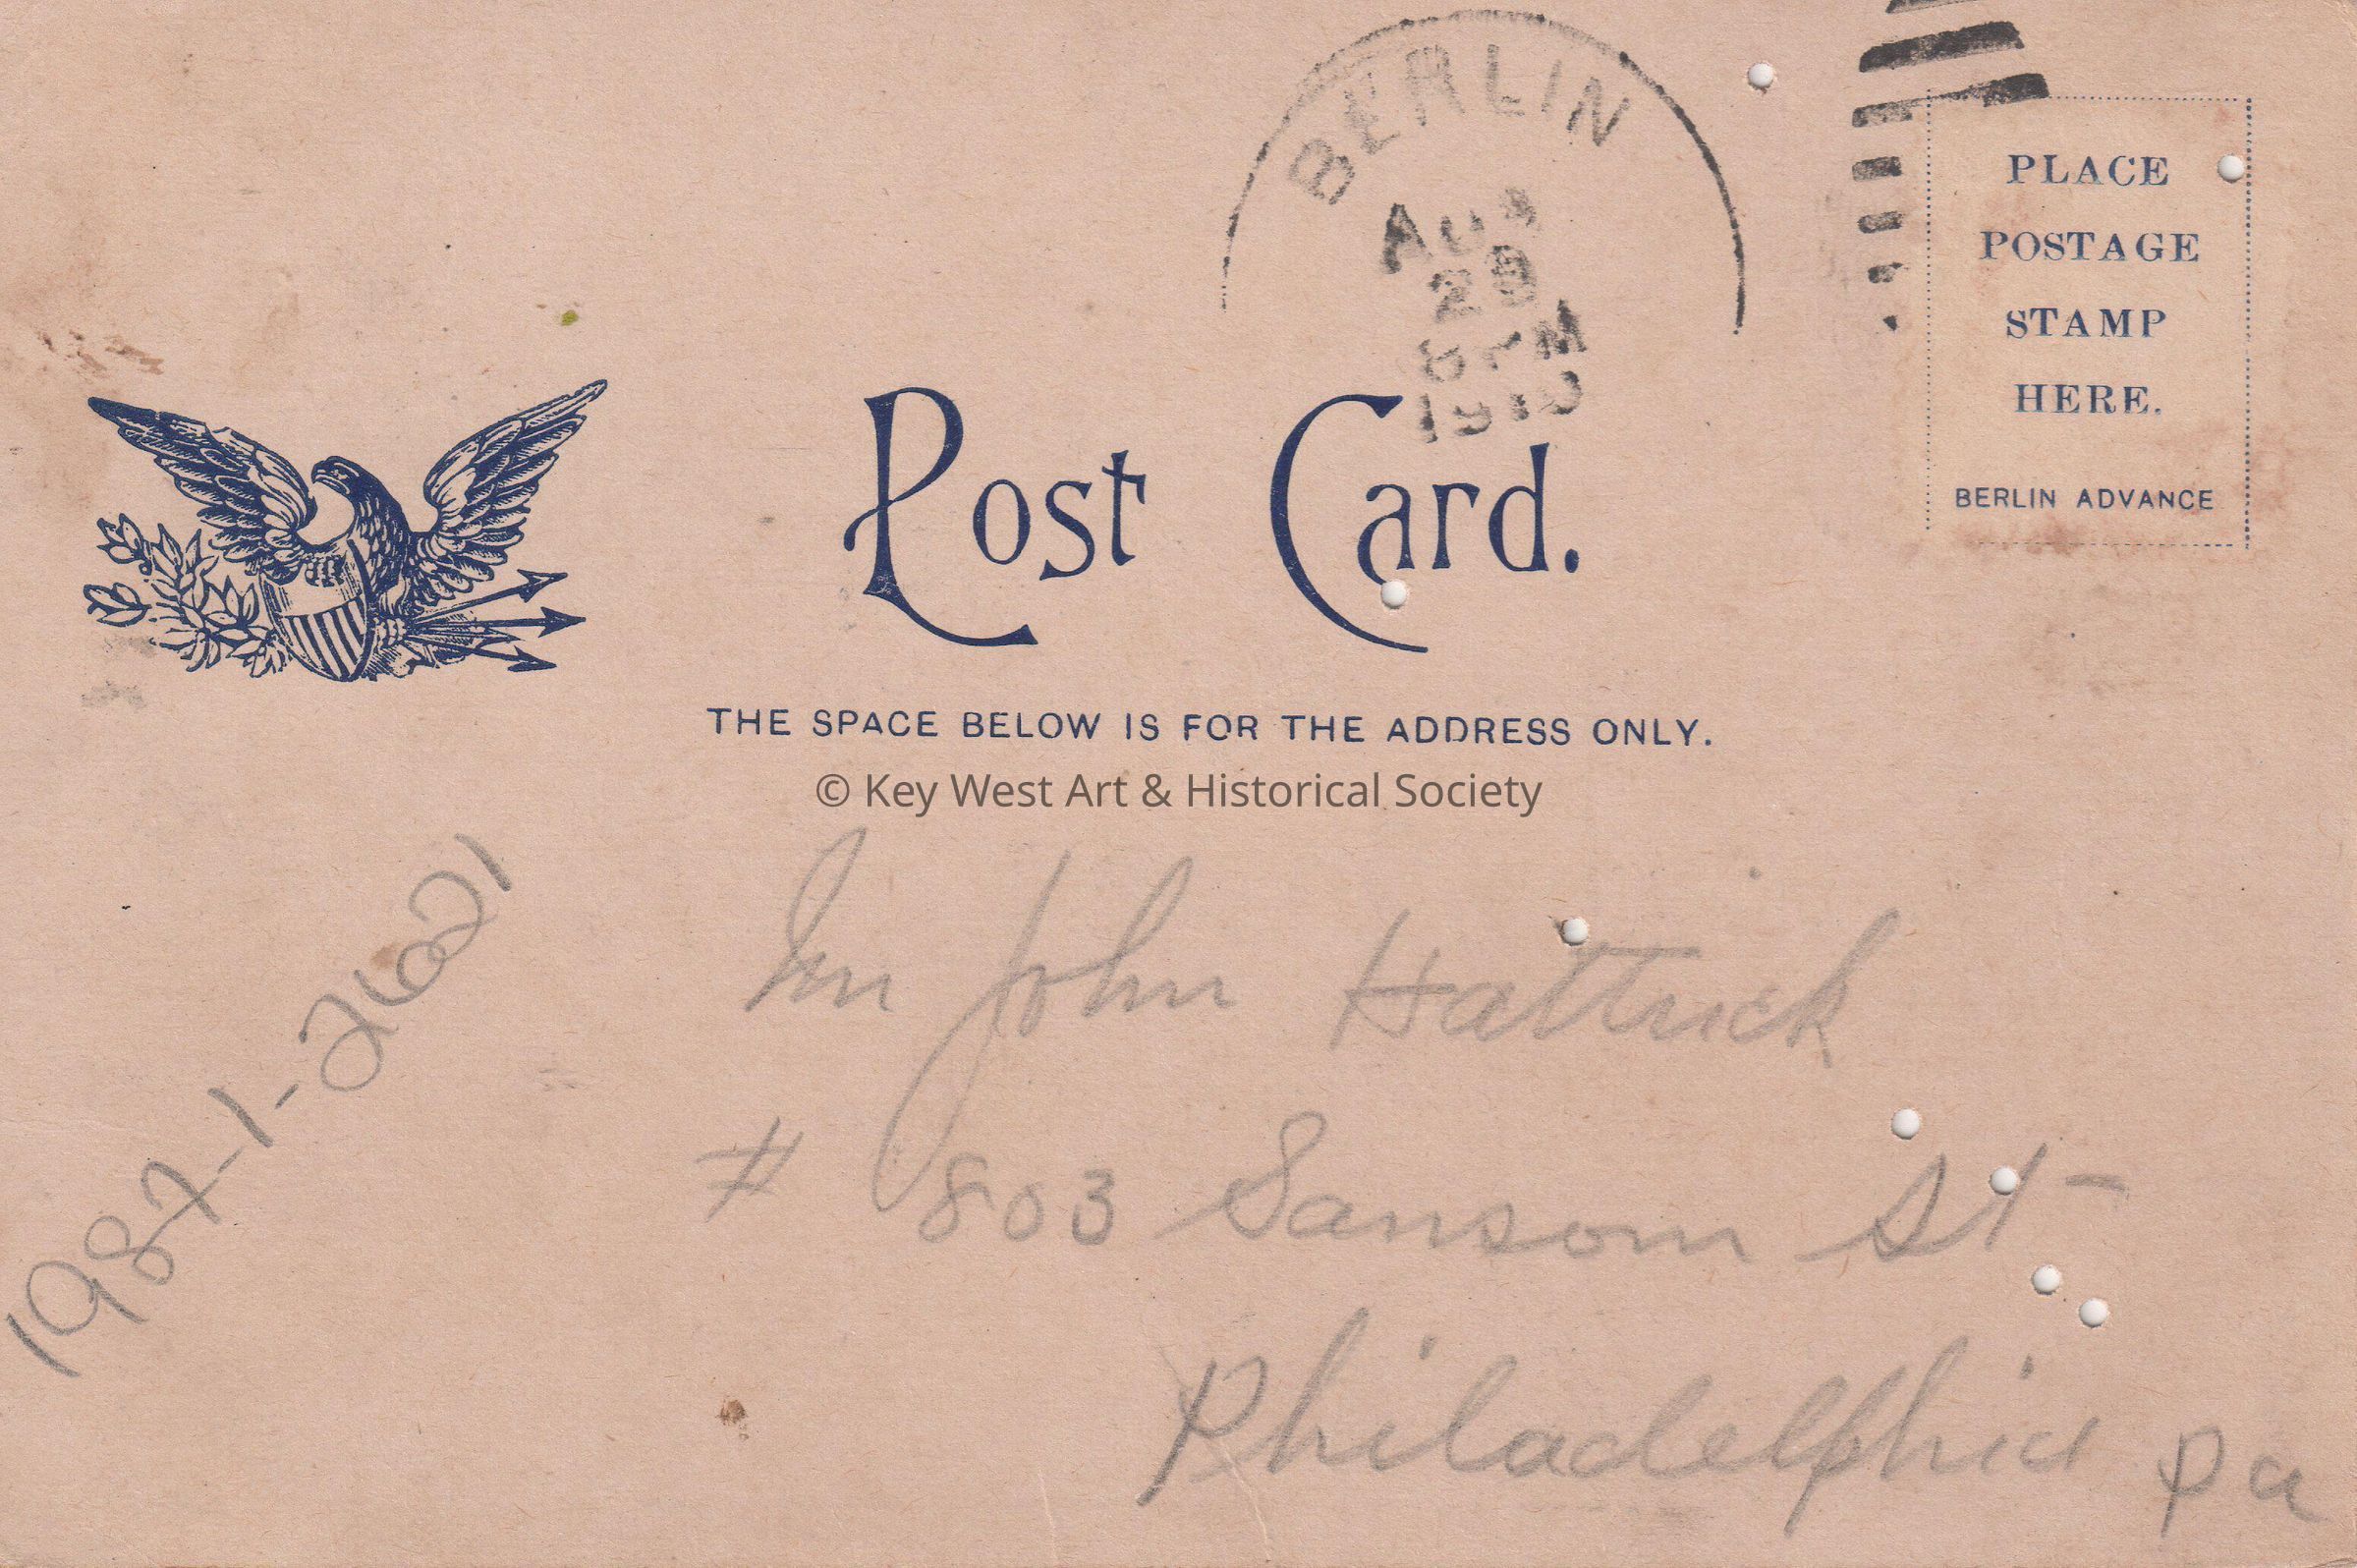 BERLIN
AUG
28
PM
1910
PLACE
POSTAGE
STAMP
HERE.
BERLIN ADVANCE
Post Card.
THE SPACE BELOW IS FOR THE ADDRESS ONLY.
© Key West Art & Historical Society
John Hattrick
# 803 Sansom St-
Philadelphia Pa
1987-1-2621